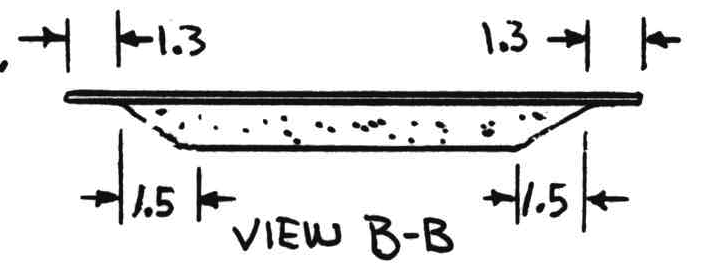 1.3 1.3
1.5 1.5
VIEW B-B